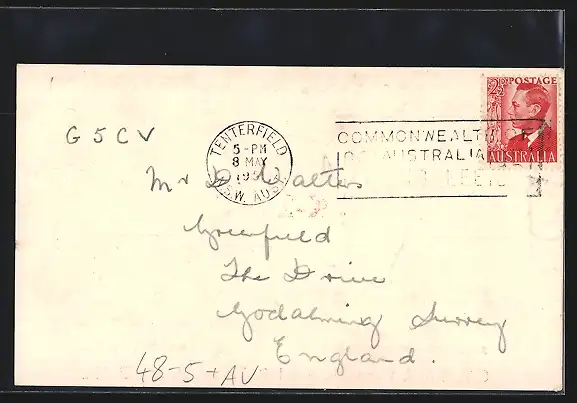 2½D POSTAGE
AUSTRALIA
G5CV
TENTERFIELD
5-PM
8 MAY
195
N.S.W. AUST.
COMMONWEALTH OF
AUSTRALIA
Mr D. Walters
Greenfield
The Drive
Godalming Surrey
England.
48-5+AV